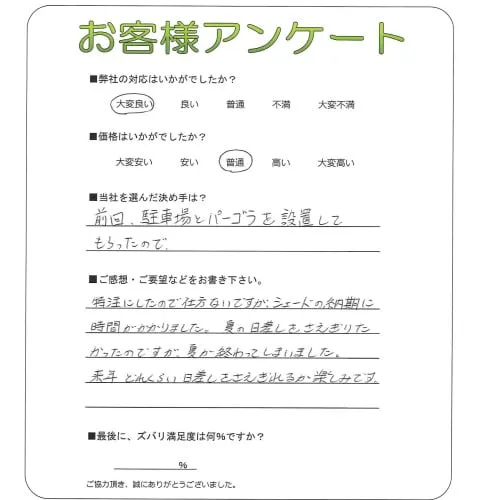 お客様アンケート
■弊社の対応はいかがでしたか？
大変良い 良い 普通 不満 大変不満
■価格はいかがでしたか？
大変安い 安い 普通 高い 大変高い
■当社を選んだ決め手は？
前回、駐車場とパーゴラを設置して
もらったので、
■ご感想・ご要望などをお書き下さい。
特注にしたので仕方ないですが、シェードの納期に
時間がかかりました。夏の日差しをさえぎりた
かったのですが、夏が終わってしまいました。
来年どれくらい日差しをさえぎれるか楽しみです。
■最後に、ズバリ満足度は何%ですか？
%
ご協力頂き、誠にありがとうございました。